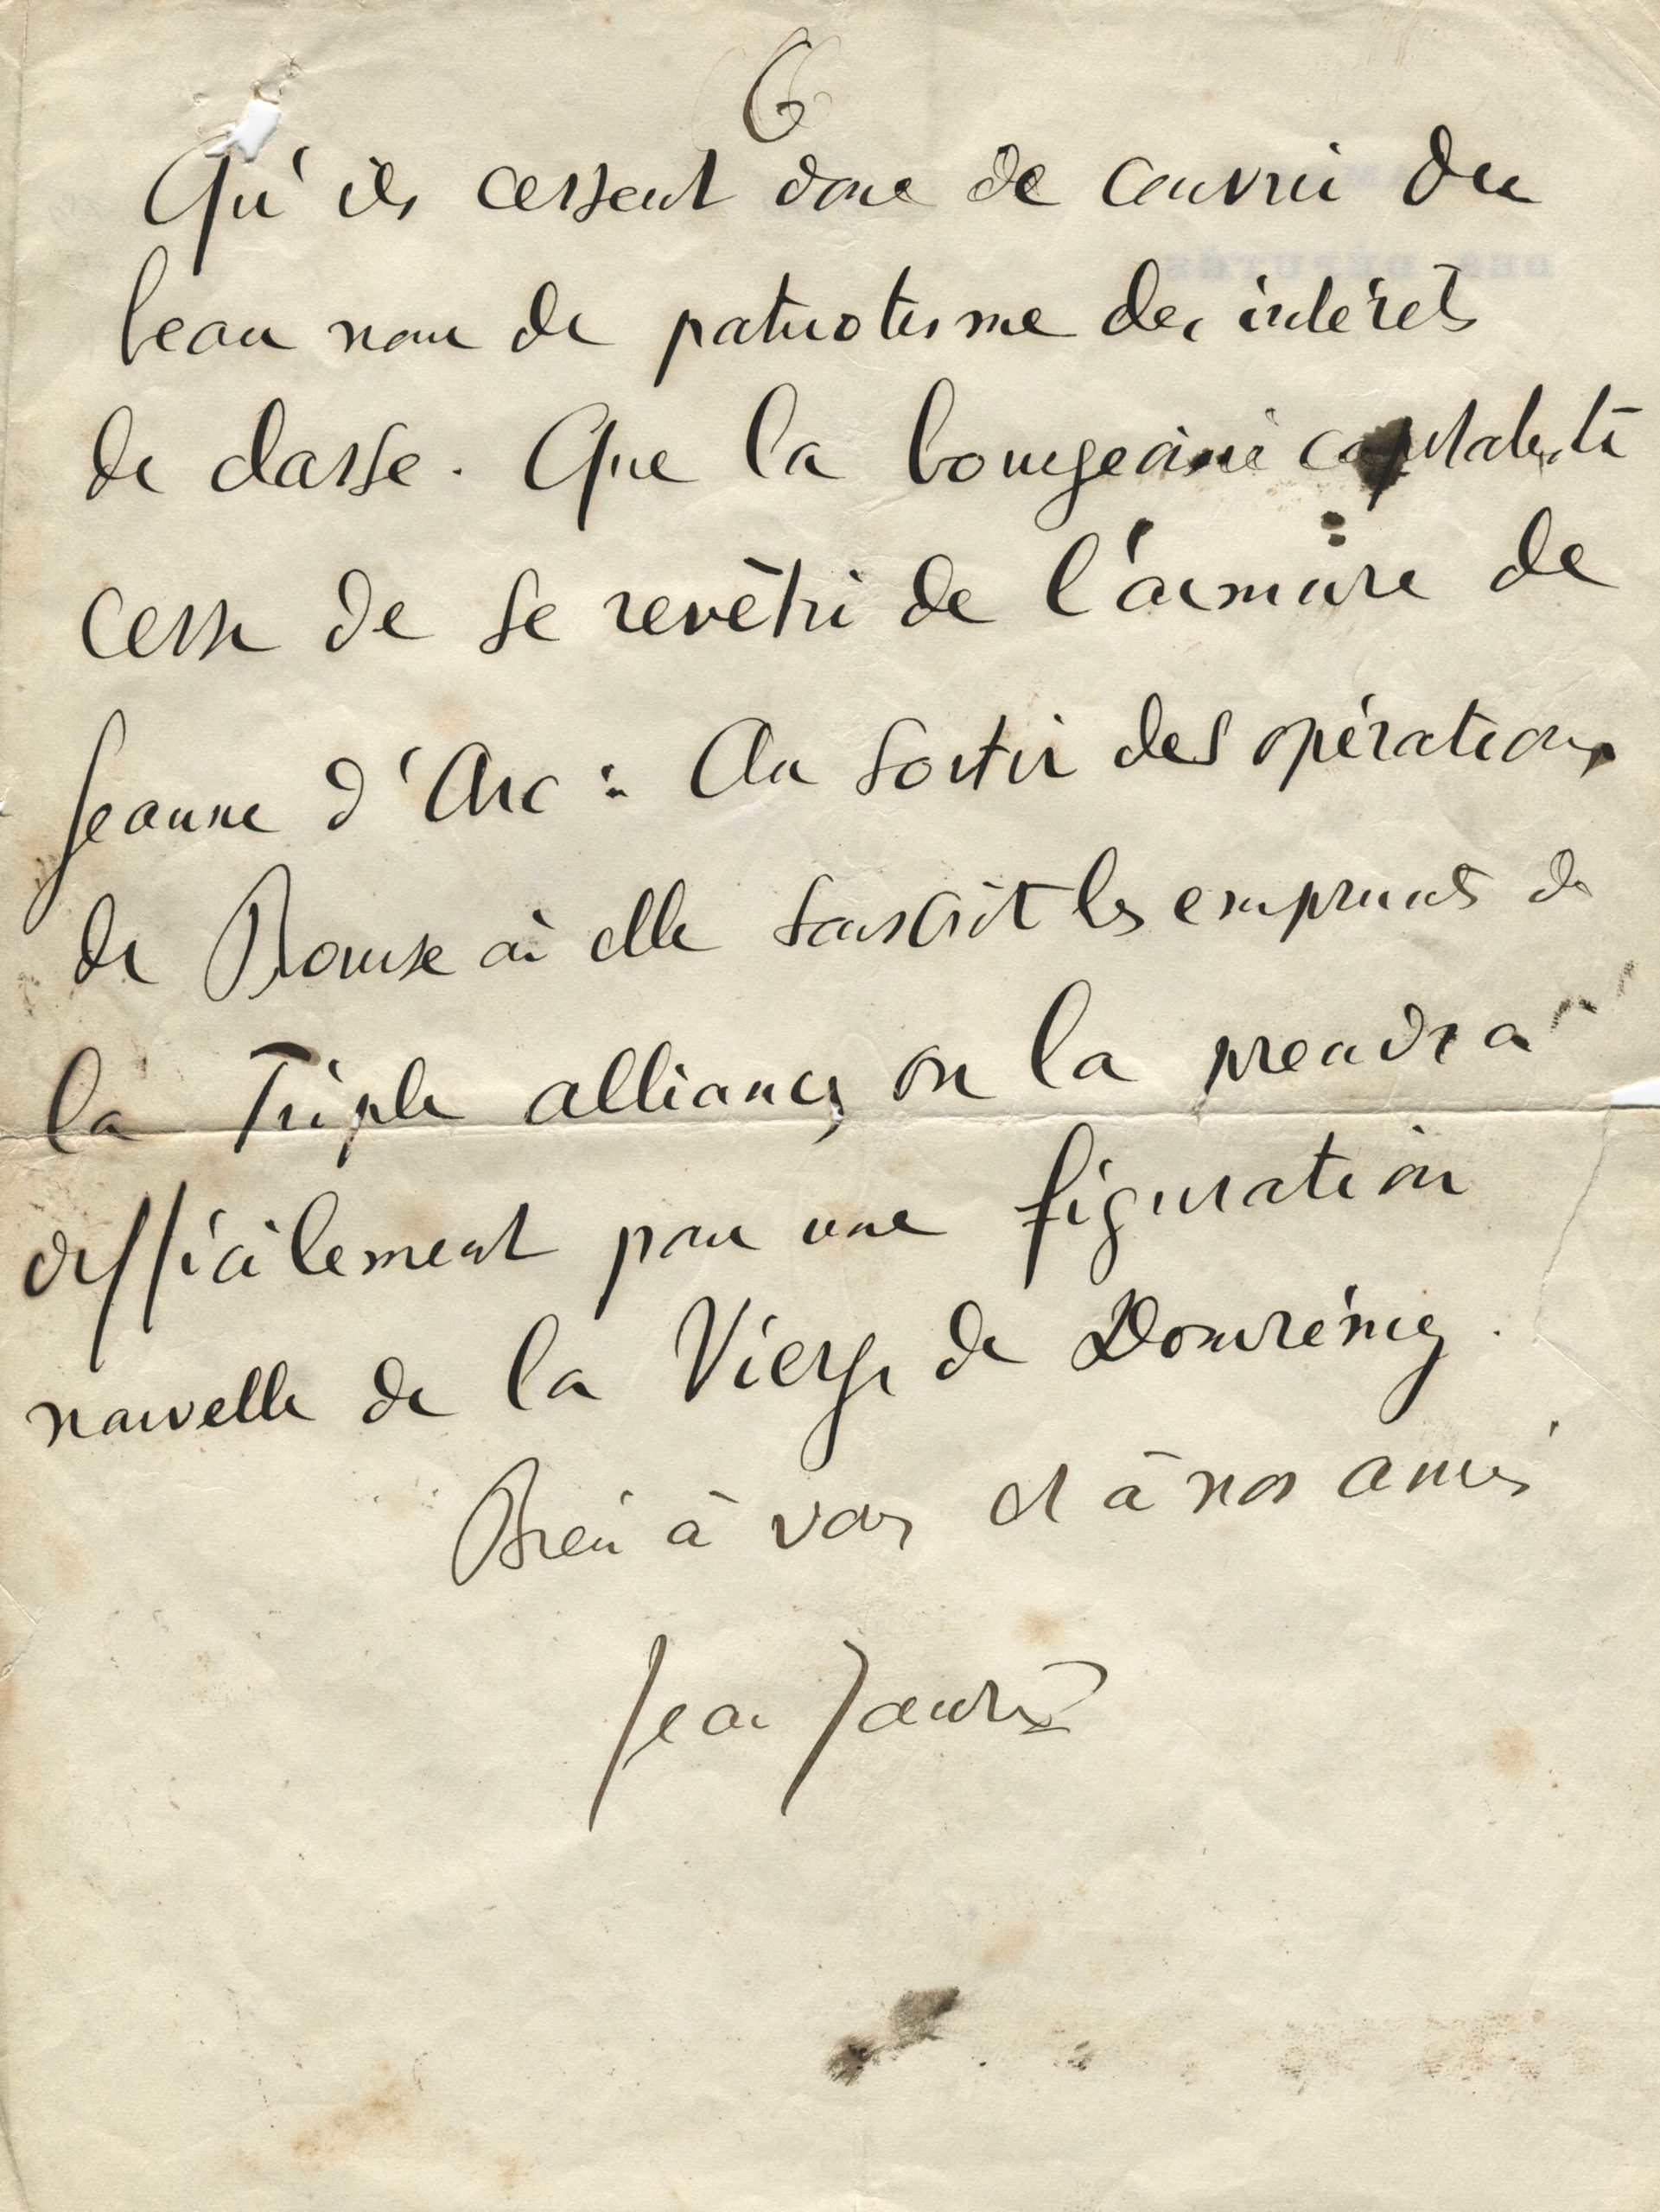 6
Qu'ils cessent donc de couvrir du
beau nom de patriotisme des intérêts
de classe. Que la bourgeoisie capitaliste
cesse de se revêtir de l'armure de
Jeanne d'Arc : Au sortir des opérations
de Bourse où elle souscrit les emprunts de
la Triple alliance, on la prendra
difficilement pour une figuration
nouvelle de la Vierge de Domrémy.
Bien à vous et à nos amis
Jean Jaurès
DES DÉPUTÉS